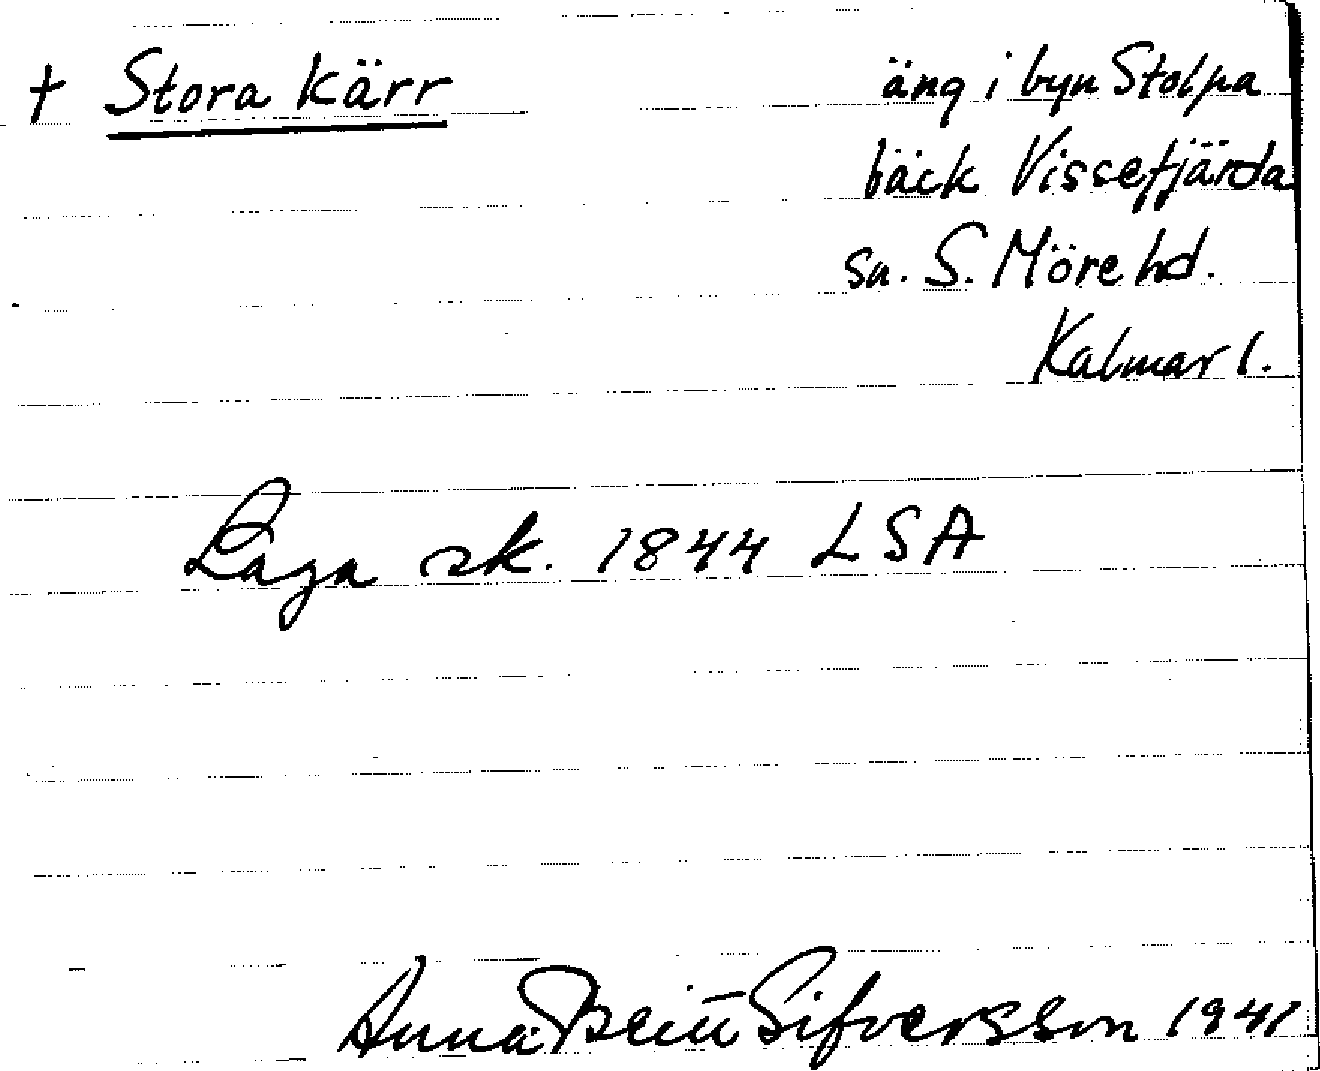 † Stora kärr
äng i byn Stolpa
bäck Vissefjärda
sn. S. Möre hd.
Kalmar l.
Laga sk. 1844 LSA
Anna Britt Sifversson 1941